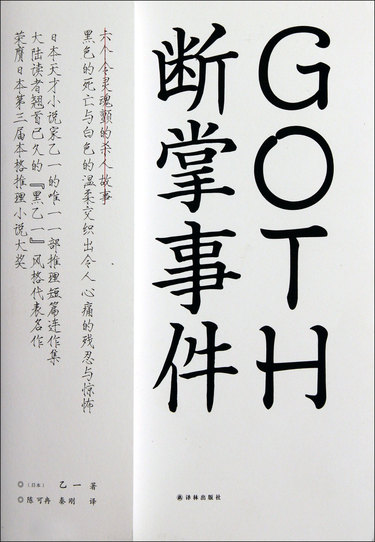 GOTH
断掌事件
译林出版社
六个令灵魂颤的杀人故事
黑色的死亡与白色的温柔交织出令人心痛的残忍与惊怖
日本天才小说家乙一的唯一一部推理短篇连作集
大陆读者翘首已久的『黑乙一』风格代表名作
荣膺日本第三届本格推理小说大奖
◎〔日本〕 乙一 著
◎陈可冉 秦刚 译